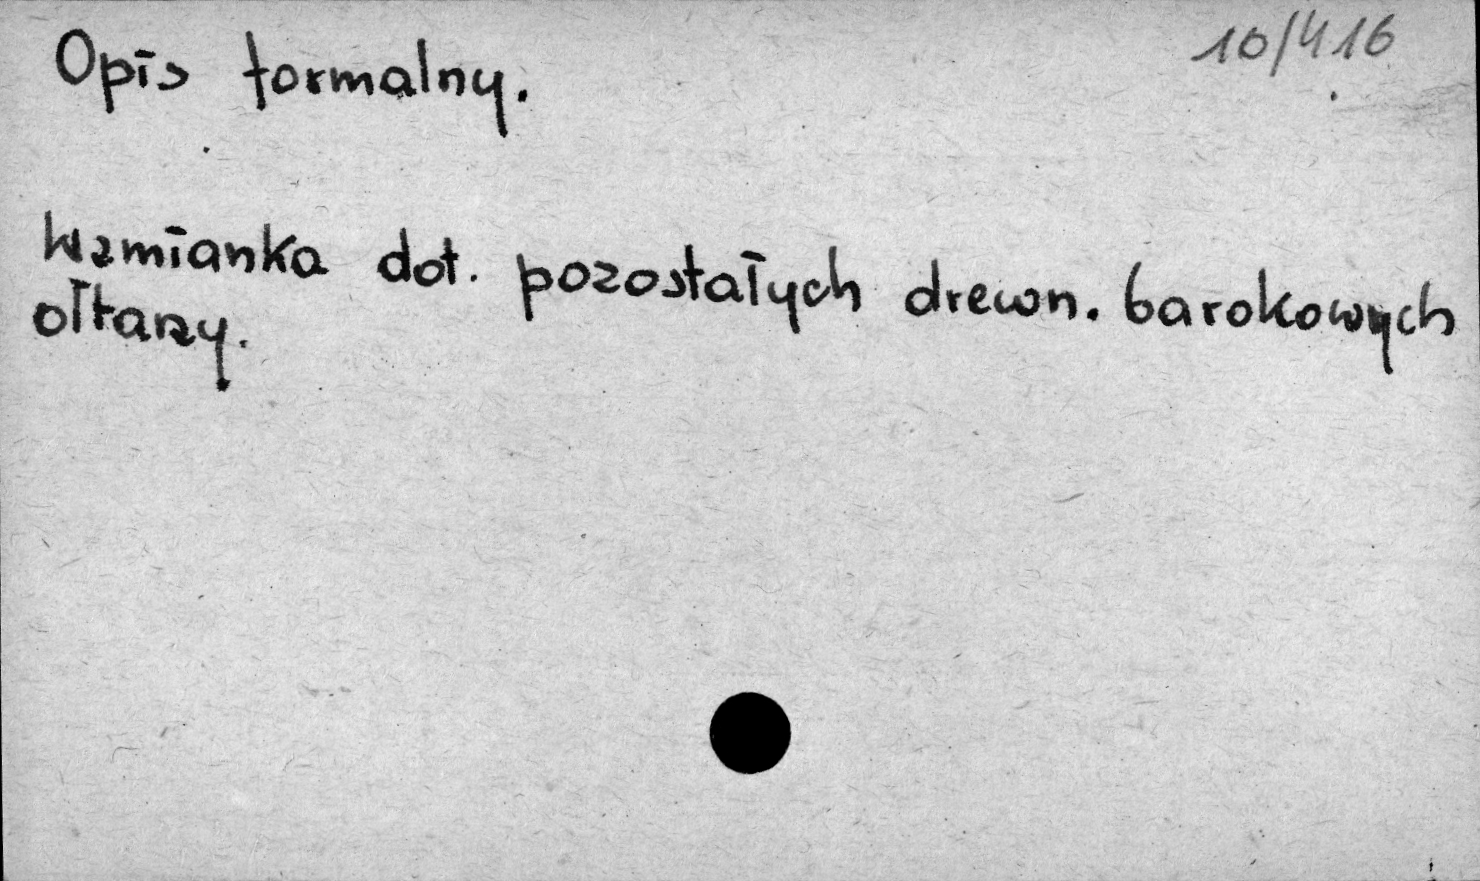 10/416
Opis formalny.
Wzmianka dot. pozostałych drewn. barokowych
ołtarzy.